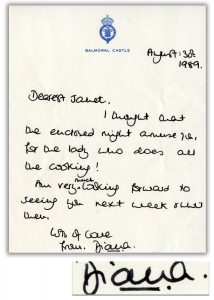 BALMORAL CASTLE
August: 30th
1989.
Dearest Janet,
I thought that
the enclosed might amuse you,
for the lady who does all
the cooking!
Am very much looking forward to
seeing you next week &
then.
Lots of love
from, Diana.
Diana.